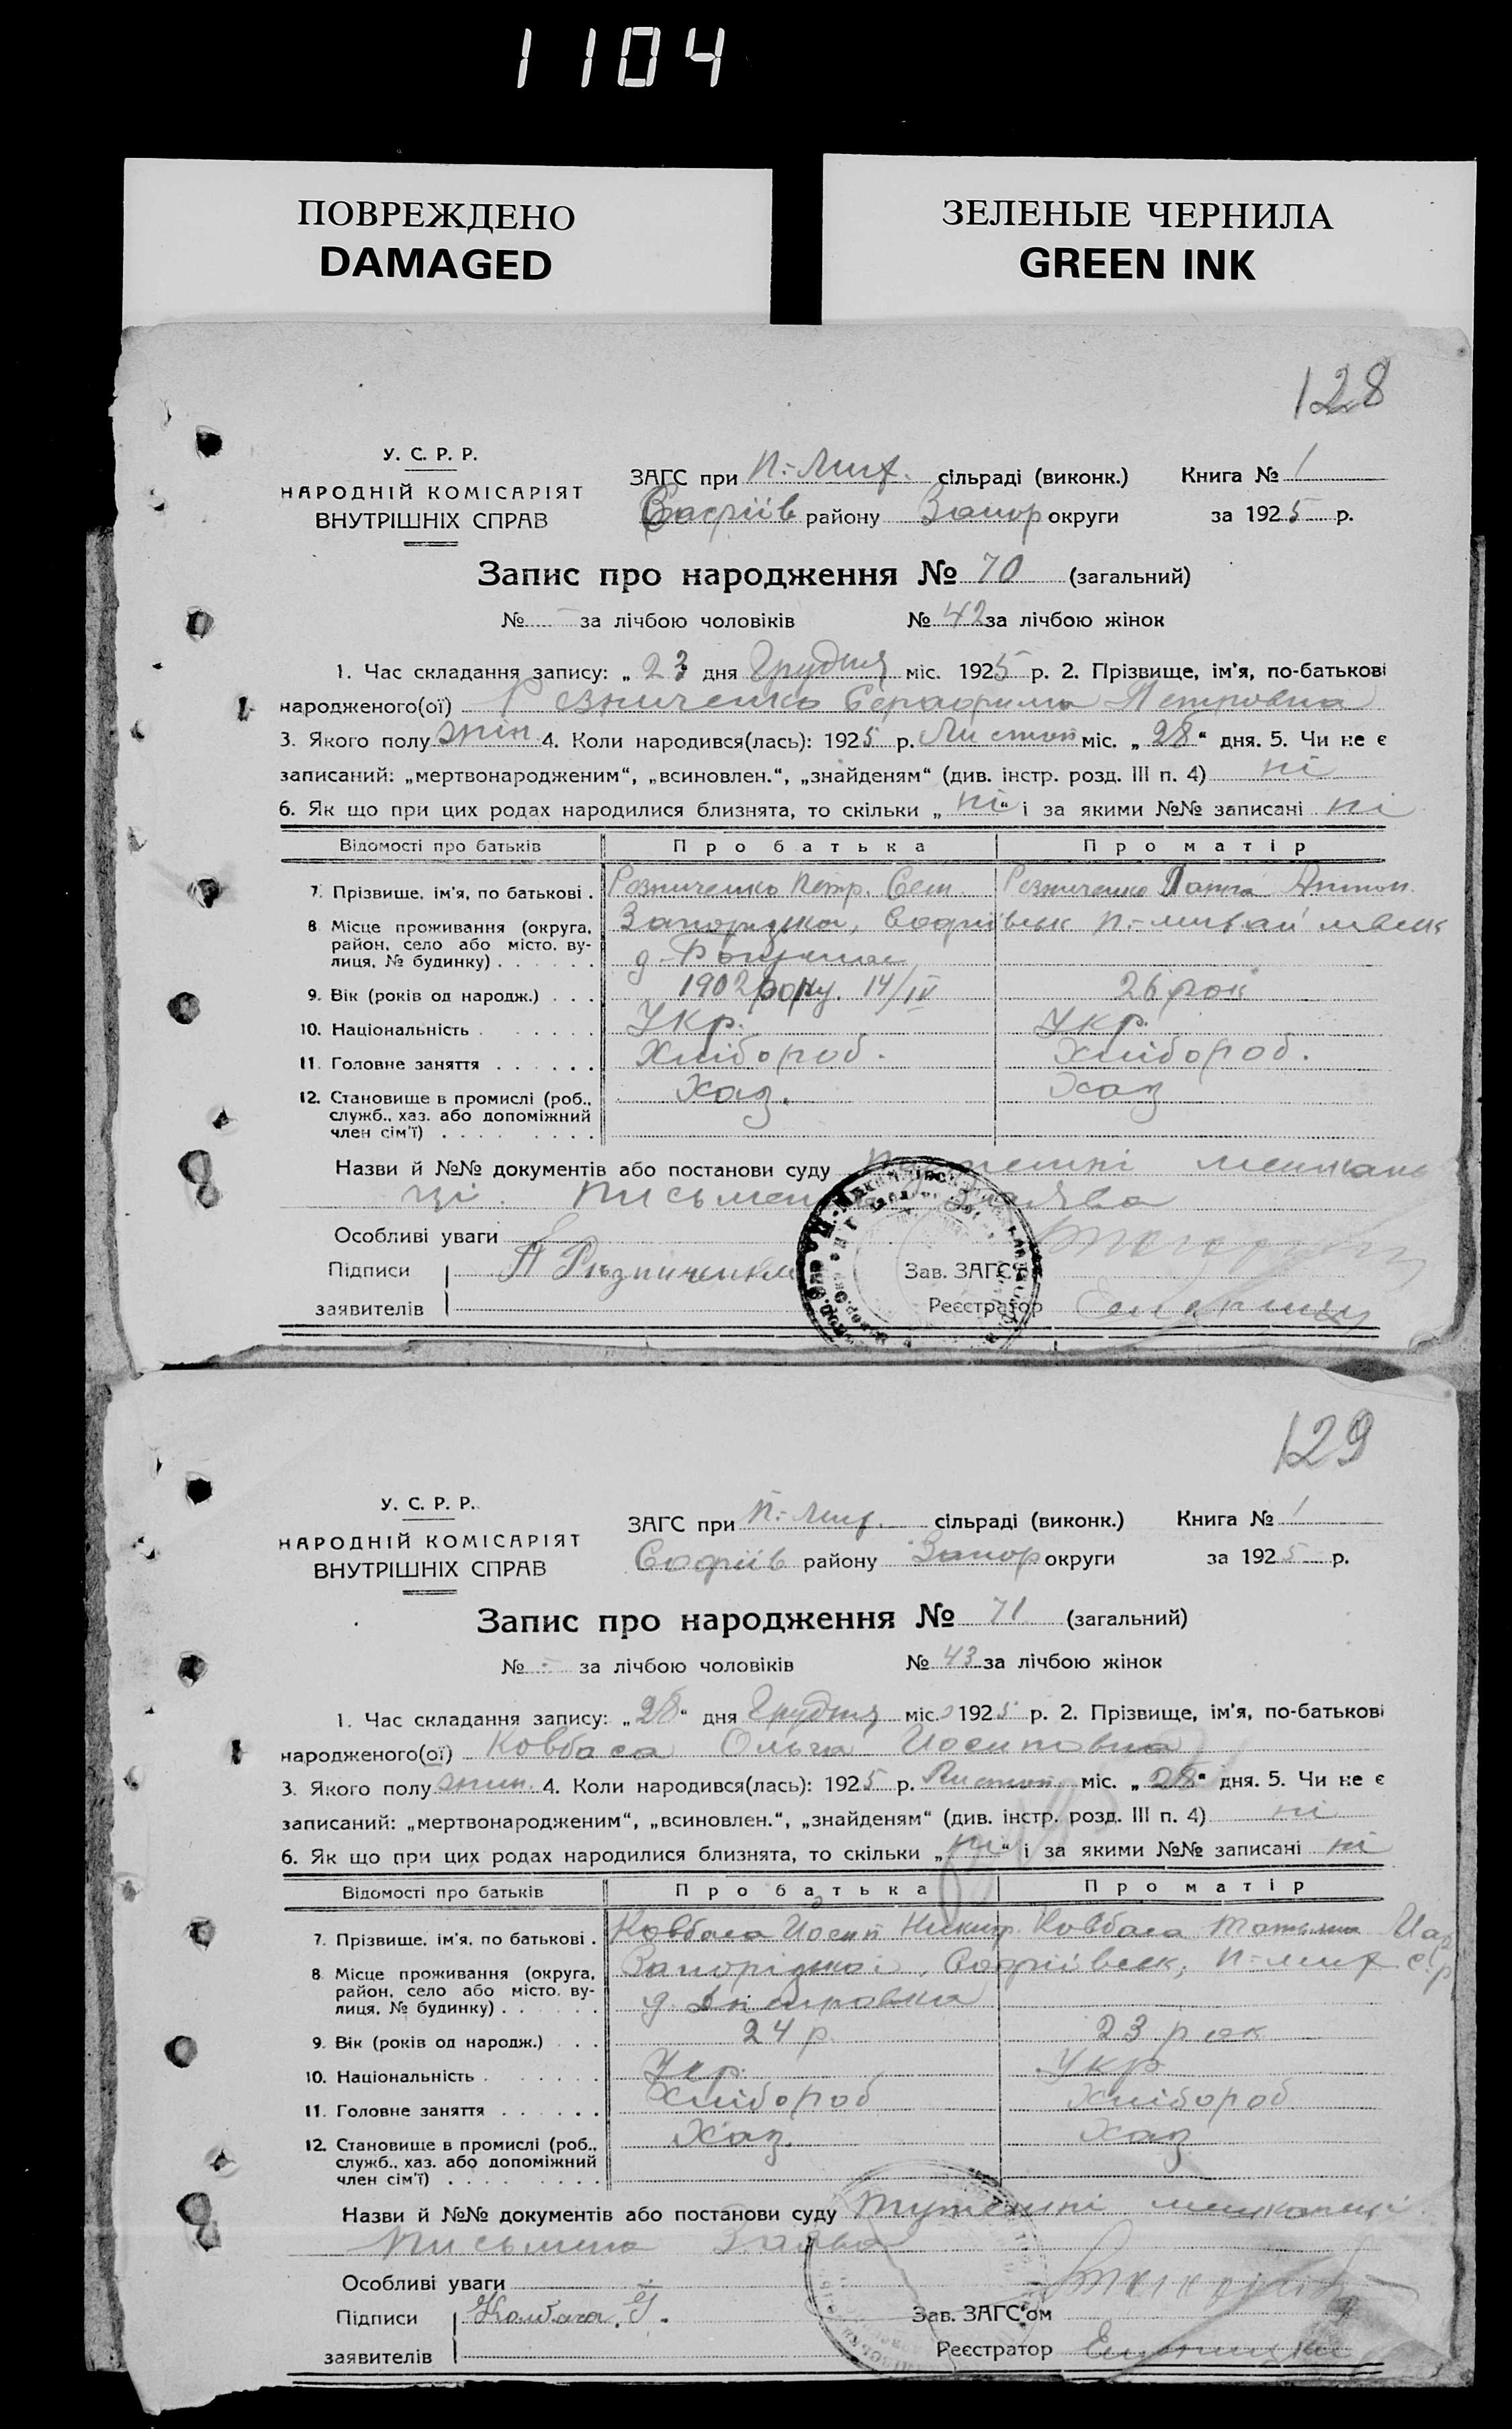 1104
ПОВРЕЖДЕНО
DAMAGED
ЗЕЛЕНЫЕ ЧЕРНИЛА
GREEN INK
128
У. С. Р. Р.
НАРОДНІЙ КОМІСАРІЯТ
ВНУТРІШНІХ СПРАВ
ЗАГС при П.-Лит. сільраді (виконк.) Книга № 1
району Запор округи за 1925 р.
Запис про народження № 70 (загальний)
№ - за лічбою чоловіків № 42 за лічбою жінок
1. Час складання запису: „ 23 дня Грудня міс. 1925 р. 2. Прізвище, ім'я, по-батькові
народженого(ої) Резниченко Серафима Петровна
3. Якого полу жін 4. Коли народився(лась): 1925 р. Листоп міс. „ 28 “ дня. 5. Чи не є
записаний: „мертвонародженим“, „всиновлен.“, „знайденям“ (див. інстр. розд. III п. 4) ні
6. Як що при цих родах народилися близнята, то скільки „ ні “ і за якими №№ записані ні
Відомості про батьків Про батька Про матір
7. Прізвище, ім'я, по батькові . Резниченко Петр. Сем. Резниченко Антон.
8 Місце проживання (округа, район, село або місто, вулиця, № будинку) Запоризька, Софиівськ
9. Вік (років од народж.) . . . 1902 року. 14/IV 26 рок
10. Національність Укр. Укр.
11. Головне заняття Хлібороб. Хлібороб.
12. Становище в промислі (роб., Хаз. Хаз
служб., хаз. або допоміжний
член сім'ї)
Назви й №№ документів або постанови суду тутешні мешкан
ці. письмена Заява
Особливі уваги
Підписи П Різниченко Зав. ЗАГС'ом
заявителів Реєстратор
129
У. С. Р. Р.
НАРОДНІЙ КОМІСАРІЯТ
ВНУТРІШНІХ СПРАВ
ЗАГС при П.-Лит. сільраді (виконк.) Книга № 1
Софіїв району Запор округи за 1925 р.
Запис про народження № 71 (загальний)
№ - за лічбою чоловіків № 43 за лічбою жінок
1. Час складання запису: „ 28 “ дня Грудня міс. 1925 р. 2. Прізвище, ім'я, по-батькові
народженого(ої) Ковбаса Ольга Иосиповна
3. Якого полу жин. 4. Коли народився(лась): 1925 р. Листоп. міс. „ 28 “ дня. 5. Чи не є
записаний: „мертвонародженим“, „всиновлен.“, „знайденям“ (див. інстр. розд. III п. 4) ні
6. Як що при цих родах народилися близнята, то скільки „ ні “ і за якими №№ записані ні
Відомості про батьків Про батька Про матір
7. Прізвище, ім'я, по батькові . Ковбаса Иосип Никиф. Ковбаса Татьяна
8 Місце проживання (округа, Запорізької, Софіївськ, П.-Лит с.р
район, село або місто, ву-
лиця, № будинку)
9. Вік (років од народж.) . . . 24 р. 23 рок
10. Національність Укр. Укр
11. Головне заняття Хлібороб Хлібороб
12. Становище в промислі (роб., Хаз. Хаз
служб., хаз. або допоміжний
член сім'ї)
Назви й №№ документів або постанови суду тутешні мешканці
письмена Заява
Особливі уваги
Підписи Зав. ЗАГС'ом
заявителів Реєстратор